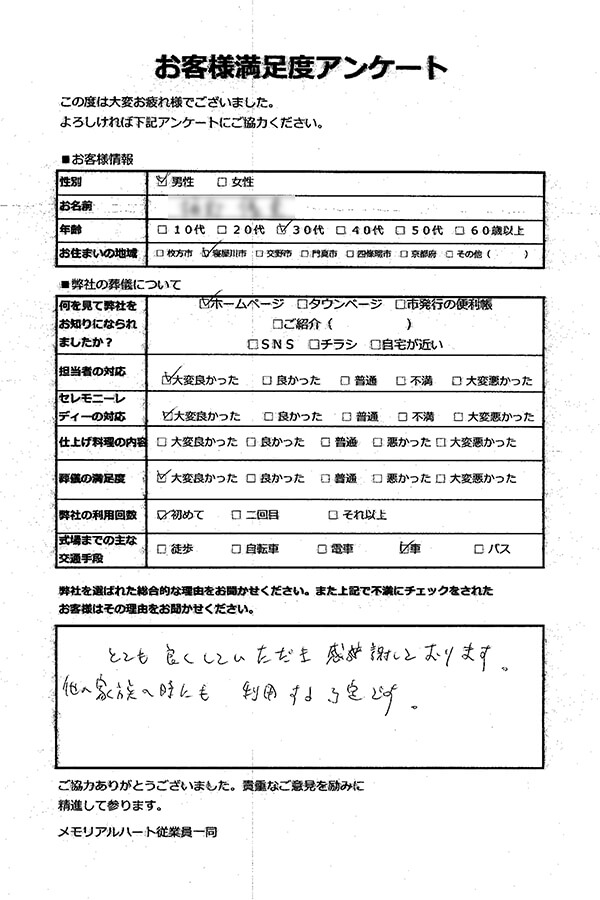 お客様満足度アンケート
この度は大変お疲れ様でございました。
よろしければ下記アンケートにご協力ください。
■お客様情報
性別 ☑男性 □女性
お名前
年齢 □10代 □20代 ☑30代 □40代 □50代 □60歳以上
お住まいの地域 □枚方市 ☑寝屋川市 □交野市 □門真市 □四條畷市 □京都府 □その他（ ）
■弊社の葬儀について
何を見て弊社を ☑ホームページ □タウンページ □市発行の便利帳
お知りになられ □ご紹介（ ）
ましたか？ □SNS □チラシ □自宅が近い
担当者の対応 ☑大変良かった □良かった □普通 □不満 □大変悪かった
セレモニーレ
ディーの対応 ☑大変良かった □良かった □普通 □不満 □大変悪かった
仕上げ料理の内容 □大変良かった □良かった □普通 □悪かった □大変悪かった
葬儀の満足度 ☑大変良かった □良かった □普通 □悪かった □大変悪かった
弊社の利用回数 ☑初めて □二回目 □それ以上
式場までの主な
交通手段 □徒歩 □自転車 □電車 ☑車 □バス
弊社を選ばれた総合的な理由をお聞かせください。また上記で不満にチェックをされた
お客様はその理由をお聞かせください。
とても良くしていただき感謝しております。
他の家族の時にも利用する予定です。
ご協力ありがとうございました。貴重なご意見を励みに
精進して参ります。
メモリアルハート従業員一同